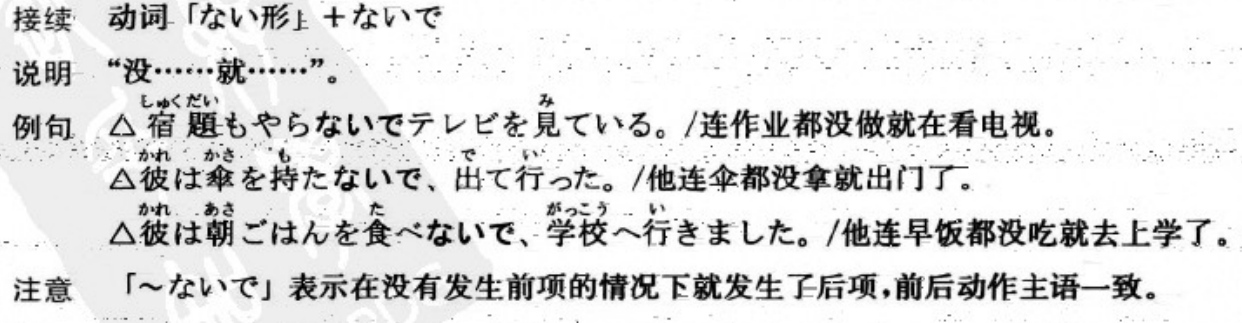 接续 动词「ない形」+ないで
说明 “没……就……”。
しゅくだい み
例句 △宿題もやらないでテレビを見ている。/连作业都没做就在看电视。
かれ かさ も で い
△彼は傘を持たないで、出て行った。/他连伞都没拿就出门了。
かれ あさ た がっこう い
△彼は朝ごはんを食べないで、学校へ行きました。/他连早饭都没吃就去上学了。
注意 「～ないで」表示在没有发生前项的情况下就发生了后项,前后动作主语一致。